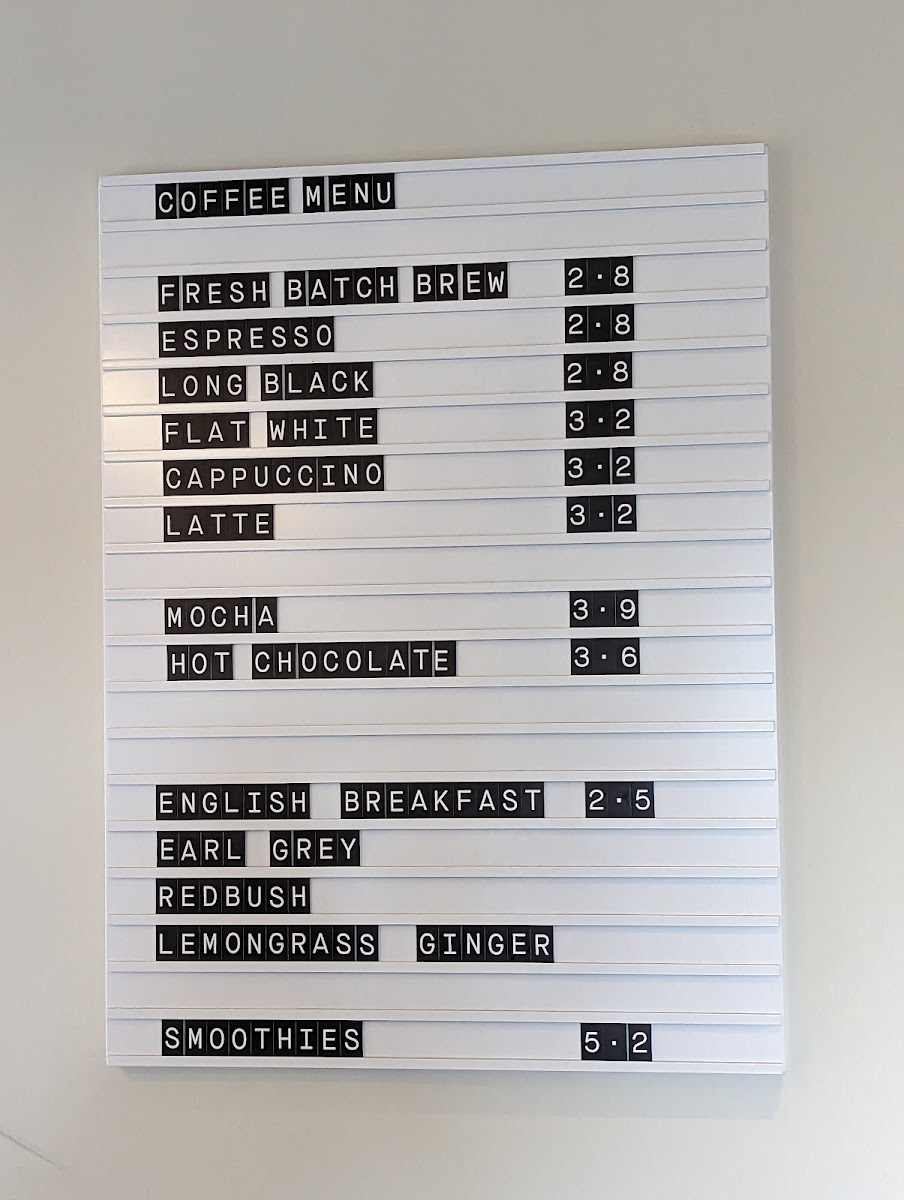 COFFEE MENU
FRESH BATCH BREW 2·8
ESPRESSO 2·8
LONG BLACK 2·8
FLAT WHITE 3·2
CAPPUCCINO 3·2
LATTE 3·2
MOCHA 3·9
HOT CHOCOLATE 3·6
ENGLISH BREAKFAST 2·5
EARL GREY
REDBUSH
LEMONGRASS GINGER
SMOOTHIES 5·2